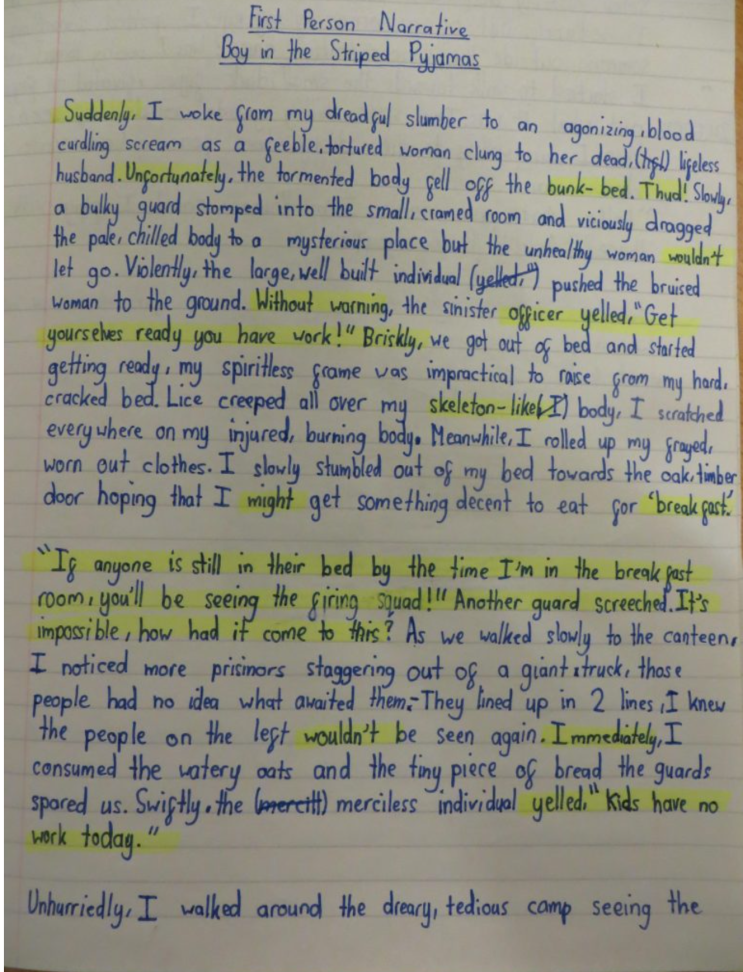 First Person Narrative
Boy in the Striped Pyjamas
Suddenly, I woke from my dreadful slumber to an agonizing, blood
curdling scream as a feeble, tortured woman clung to her dead, lifeless
husband. Unfortunately, the tormented body fell off the bunk-bed. Thud! Slowly,
a bulky guard stomped into the small, cramed room and viciously dragged
the pale, chilled body to a mysterious place but the unhealthy woman wouldn't
let go. Violently, the large, well built individual (yelled,") pushed the bruised
woman to the ground. Without warning, the sinister officer yelled, "Get
yourselves ready you have work!" Briskly, we got out of bed and started
getting ready, my spiritless frame was impractical to raise from my hard,
cracked bed. Lice creeped all over my skeleton-like (I) body, I scratched
everywhere on my injured, burning body. Meanwhile, I rolled up my frayed,
worn out clothes. I slowly stumbled out of my bed towards the oak, timber
door hoping that I might get something decent to eat for 'breakfast.'
"If anyone is still in their bed by the time I'm in the breakfast
room, you'll be seeing the firing squad!" Another guard screeched. It's
impossible, how had it come to this? As we walked slowly to the canteen,
I noticed more prisinors staggering out of a giant truck, those
people had no idea what awaited them. They lined up in 2 lines, I knew
the people on the left wouldn't be seen again. Immediately, I
consumed the watery oats and the tiny piece of bread the guards
spared us. Swiftly, the (mercitt) merciless individual yelled, "Kids have no
work today."
Unhurriedly, I walked around the dreary, tedious camp seeing the